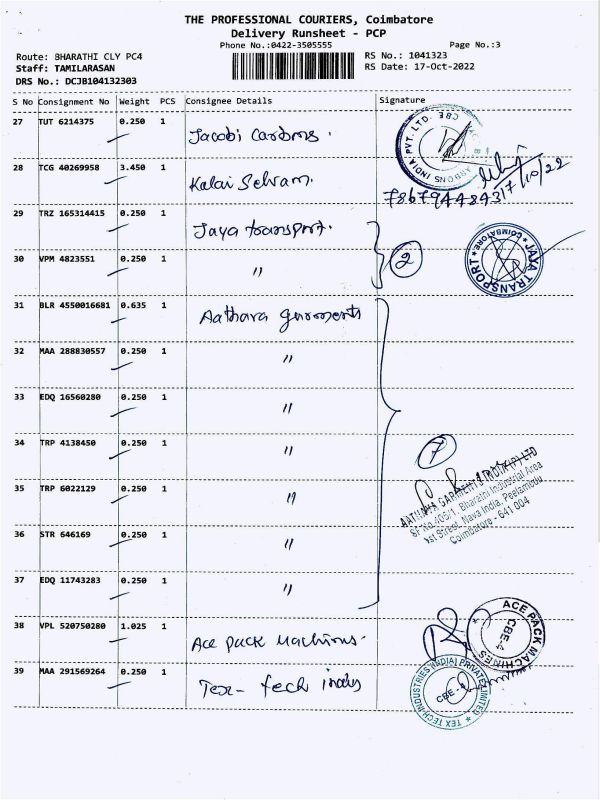 THE PROFESSIONAL COURIERS, Coimbatore
Delivery Runsheet - PCP
Phone No.:0422-3505555
Page No.:3
Route: BHARATHI CLY PC4
RS No.: 1041323
Staff: TAMILARASAN
RS Date: 17-Oct-2022
DRS No.: DCJB104132303
S No Consignment No Weight PCS Consignee Details Signature
27 TUT 6214375 0.250 1 Jacobi Carbons.
CBE
ARBONS INDIA PVT. LTD.
28 TCG 40269958 3.450 1 Kalai Selvam.
17/10/22
7867944843
29 TRZ 165314415 0.250 1 Jaya transport.
2
JAYA TRANSPORT
COIMBATORE
30 VPM 4823551 0.250 1 "
31 BLR 4550016681 0.635 1 Aathava garments
32 MAA 288830557 0.250 1 "
33 EDQ 16560280 0.250 1 "
34 TRP 4138450 0.250 1 "
7
AATHAVA GARMENTS INDIA (P) LTD
SF No.409/1, Bharathi Industrial Area
1st Street, Nava India, Peelamedu
Coimbatore - 641 004
35 TRP 6022129 0.250 1 "
36 STR 646169 0.250 1 "
37 EDQ 11743283 0.250 1 "
38 VPL 520750280 1.025 1 Ace pack Machines.
ACE PACK MACHINES
CBE-4
39 MAA 291569264 0.250 1 Tex- tech inds
TEX TECH INDUSTRIES (INDIA) PRIVATE LIMITED
CBE -